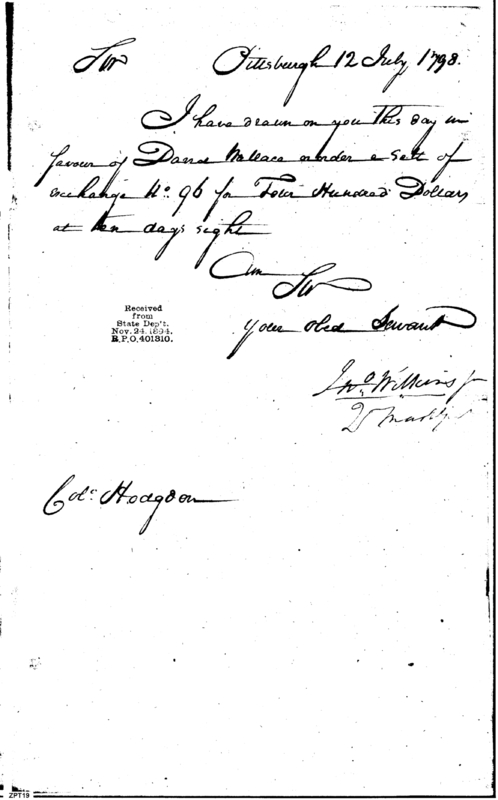 Sir Pittsburgh 12 July, 1798.
I have drawn on you this day in
favour of David Wallace order a Sett of
exchange No. 96 for Four Hundred Dollars
at ten days sight
Am
Sir
your obed Servant
Jno Wilkins jr
Received
from
State Dep't.
Nov. 24, 1894.
R.P.O, 401310.
Colo Hodgdon
ZPT19